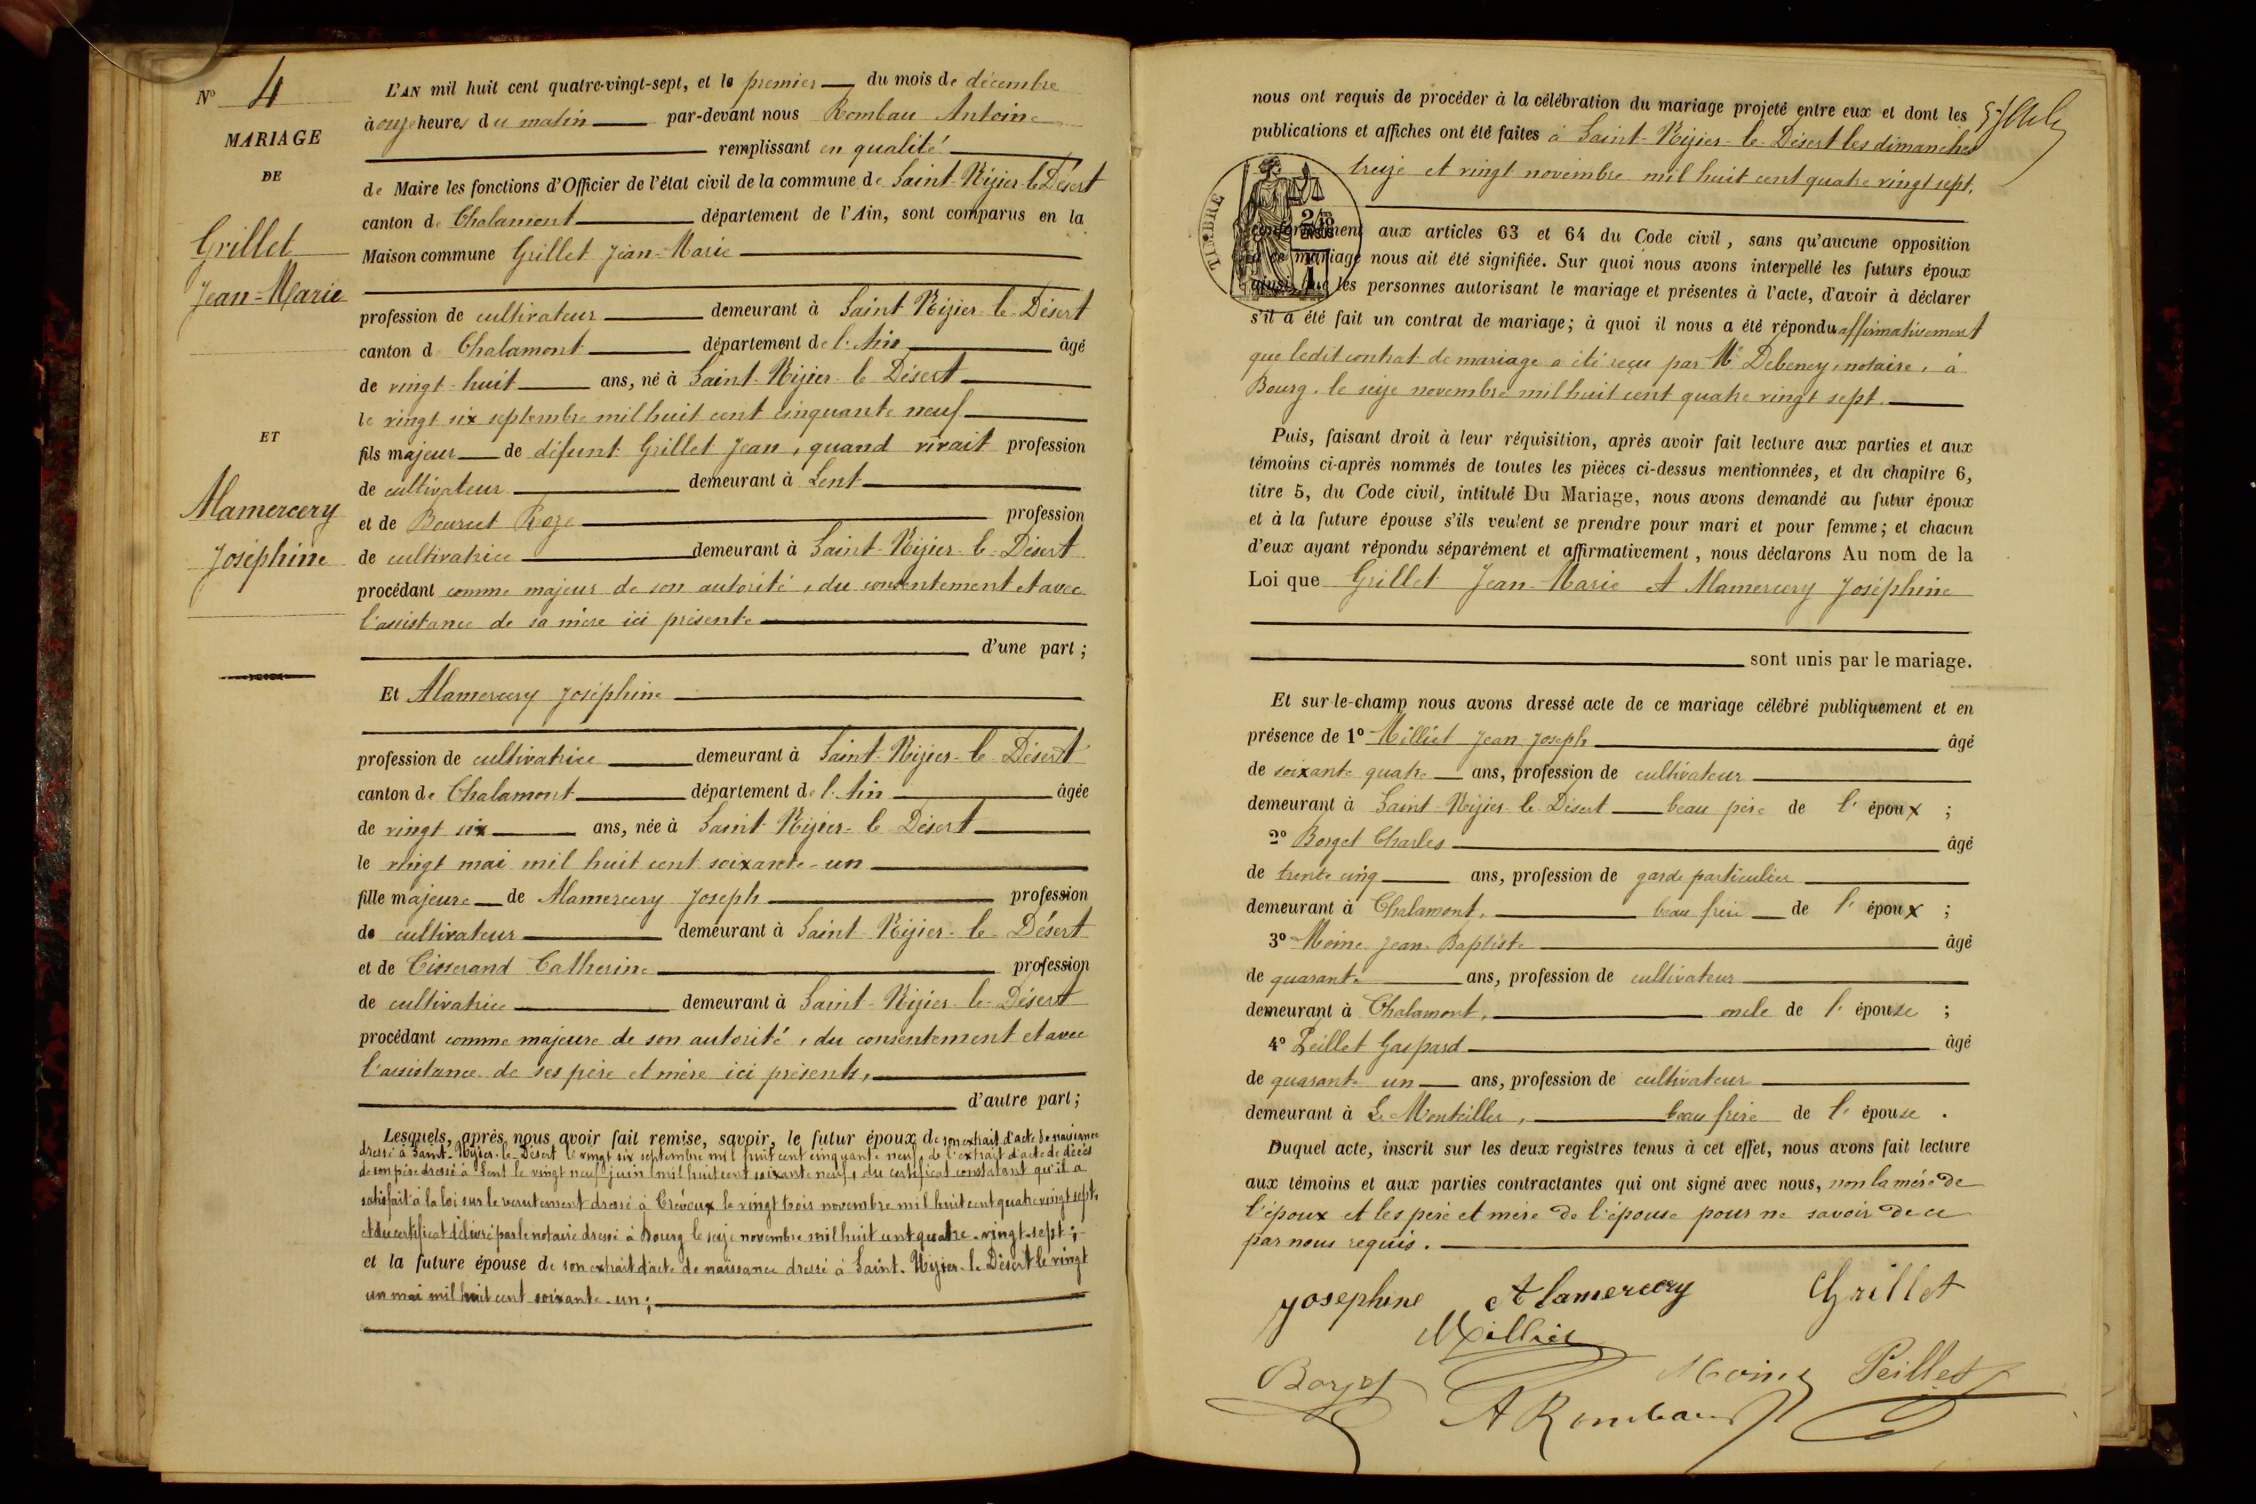 N° 4
MARIAGE
DE
Grillet
Jean-Marie
ET
Alamercery
Joséphine
L'AN mil huit cent quatre-vingt-sept, et le premier du mois de décembre
à onze heures du matin par-devant nous Rombau Antoine
remplissant en qualité
de Maire les fonctions d'Officier de l'état civil de la commune de Saint-Nizier-le-Désert
canton de Chalamont département de l'Ain, sont comparus en la
Maison commune Grillet Jean-Marie
profession de cultivateur demeurant à Saint-Nizier-le-Désert
canton d Chalamont département de l'Ain âgé
de vingt-huit ans, né à Saint-Nizier-le Désert
le vingt six septembre mil huit cent cinquante neuf
fils majeur de défunt Grillet Jean, quand vivait profession
de cultivateur demeurant à Lent
et de Bourcet Roze profession
de cultivatrice demeurant à Saint-Nizier-le-Désert
procédant comme majeur de son autorité, du consentement et avec
l'assistance de sa mère ici présente
d'une part ;
Et Alamercery Joséphine
profession de cultivatrice demeurant à Saint-Nizier-le Désert
canton de Chalamont département de l'Ain âgée
de vingt six ans, née à Saint-Nizier-le Désert
le vingt mai mil huit cent soixante-un
fille majeure de Alamercery Joseph profession
de cultivateur demeurant à Saint Nizier-le-Désert
et de Cisserand Catherine profession
de cultivatrice demeurant à Saint-Nizier-le-Désert
procédant comme majeure de son autorité, du consentement et avec
l'assistance de ses père et mère ici présents,
d'autre part ;
Lesquels, après nous avoir fait remise, savoir, le futur époux de son extrait d'acte de naissance
dressé à Saint-Nizier-le-Désert le vingt six septembre mil huit cent cinquante neuf, de l'extrait d'acte de décès
de son père dressé à Lent le vingt neuf juin mil huit cent soixante neuf, du certificat constatant qu'il a
satisfait à la loi sur le recrutement dressé à Crévoux le vingt trois novembre mil huit cent quatre vingt sept,
et du certificat délivré par le notaire dressé à Bourg le seize novembre mil huit cent quatre-vingt-sept ;
et la future épouse de son extrait d'acte de naissance dressé à Saint-Nizier-le Désert le vingt
un mai mil huit cent soixante-un ;
nous ont requis de procéder à la célébration du mariage projeté entre eux et dont les
publications et affiches ont été faites à Saint-Nizier-le-Désert les dimanches
treize et vingt novembre mil huit cent quatre vingt sept,
TIMBRE
conformément aux articles 63 et 64 du Code civil, sans qu'aucune opposition
à ce mariage nous ait été signifiée. Sur quoi nous avons interpellé les futurs époux
ainsi que les personnes autorisant le mariage et présentes à l'acte, d'avoir à déclarer
s'il a été fait un contrat de mariage ; à quoi il nous a été répondu affirmativement
que ledit contrat de mariage a été reçu par Me Debeney, notaire, à
Bourg, le seize novembre mil huit cent quatre vingt sept.
Puis, faisant droit à leur réquisition, après avoir fait lecture aux parties et aux
témoins ci-après nommés de toutes les pièces ci-dessus mentionnées, et du chapitre 6,
titre 5, du Code civil, intitulé Du Mariage, nous avons demandé au futur époux
et à la future épouse s'ils veulent se prendre pour mari et pour femme ; et chacun
d'eux ayant répondu séparément et affirmativement, nous déclarons Au nom de la
Loi que Grillet Jean-Marie et Alamercery Joséphine
sont unis par le mariage.
Et sur-le-champ nous avons dressé acte de ce mariage célébré publiquement et en
présence de 1° Milliet Jean Joseph âgé
de soixante quatre ans, profession de cultivateur
demeurant à Saint-Nizier-le-Désert beau père de l' époux ;
2° Borget Charles âgé
de trente cinq ans, profession de garde particulier
demeurant à Chalamont, beau frère de l' époux ;
3° Moine Jean-Baptiste âgé
de quarante ans, profession de cultivateur
demeurant à Chalamont, oncle de l' épouse ;
4° Peillet Gaspard âgé
de quarante un ans, profession de cultivateur
demeurant à Le Montellier, beau frère de l' épouse .
Duquel acte, inscrit sur les deux registres tenus à cet effet, nous avons fait lecture
aux témoins et aux parties contractantes qui ont signé avec nous, non la mère de
l'époux et les père et mère de l'épouse pour ne savoir de ce
par nous requis.
Josephine Alamercery Grillet
Milliet
Borget Moine Peillet
A Rombau